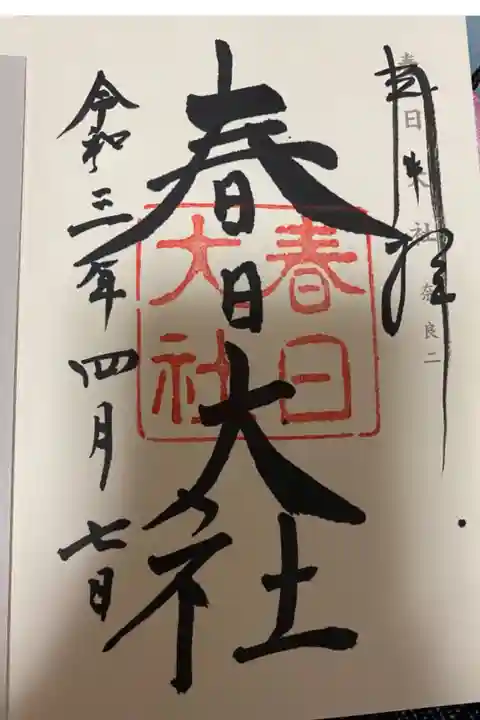 奉拝
春日大社 奈良二
春日大社
春日
大社
令和三年四月七日